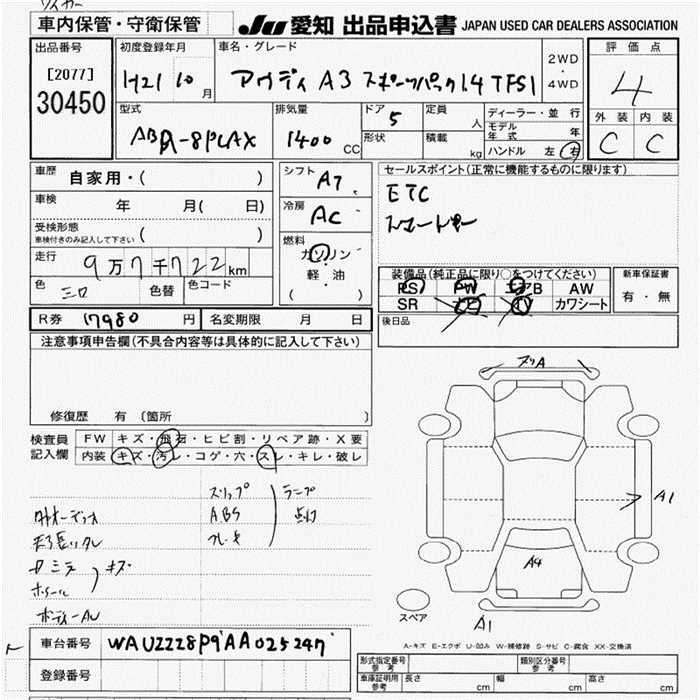 車内保管・守衛保管
JU 愛知 出品申込書 JAPAN USED CAR DEALERS ASSOCIATION
出品番号
[2077]
30450
初度登録年月
H21 10 月
車名・グレード
アウディ A3 スポーツバック 1.4 TFSI
2WD
・
4WD
評価点
4
外装 内装
C C
型式
ABA-8PCAX
排気量
1400 CC
ドア 5
形状
定員 人
積載 kg
ディーラー・並行
モデル年式 年
ハンドル 左 右
車歴 自家用・( )
車検 年 月( 日)
受検形態
車検付きのみ記入して下さい ( )
走行 9万7千722km
色 シロ 色替 色コード
シフト AT
冷房 AC
燃料
ガソリン
・
軽・油
( )
セールスポイント(正常に機能するものに限ります)
ETC
スマートキー
装備品(純正品に限り○をつけてください)
PS PW エアB AW
SR カワシート
新車保証書
有・無
後日品
R券 17980 円 名変期限 月 日
注意事項申告欄(不具合内容等は具体的に記入して下さい)
修復歴 有 〔箇所 〕
検査員
記入欄
FW キズ・飛石・ヒビ割・リペア跡・X要
内装 キズ・汚レ・コゲ・穴・スレ・キレ・破レ
スリップ
ABS
ブレーキ
ランプ
点灯
ホイール
キズ
A1
A4
A1
スペア
A-キズ E-エクボ U-凹み W-補修跡 S-サビ C-腐食 XX-交換済
車台番号 WAUZZZ8P9AA025247
登録番号
形式指定番号
参考
類別区分番号
参考
車庫証明用
参考
長さ cm 幅 cm 高さ cm